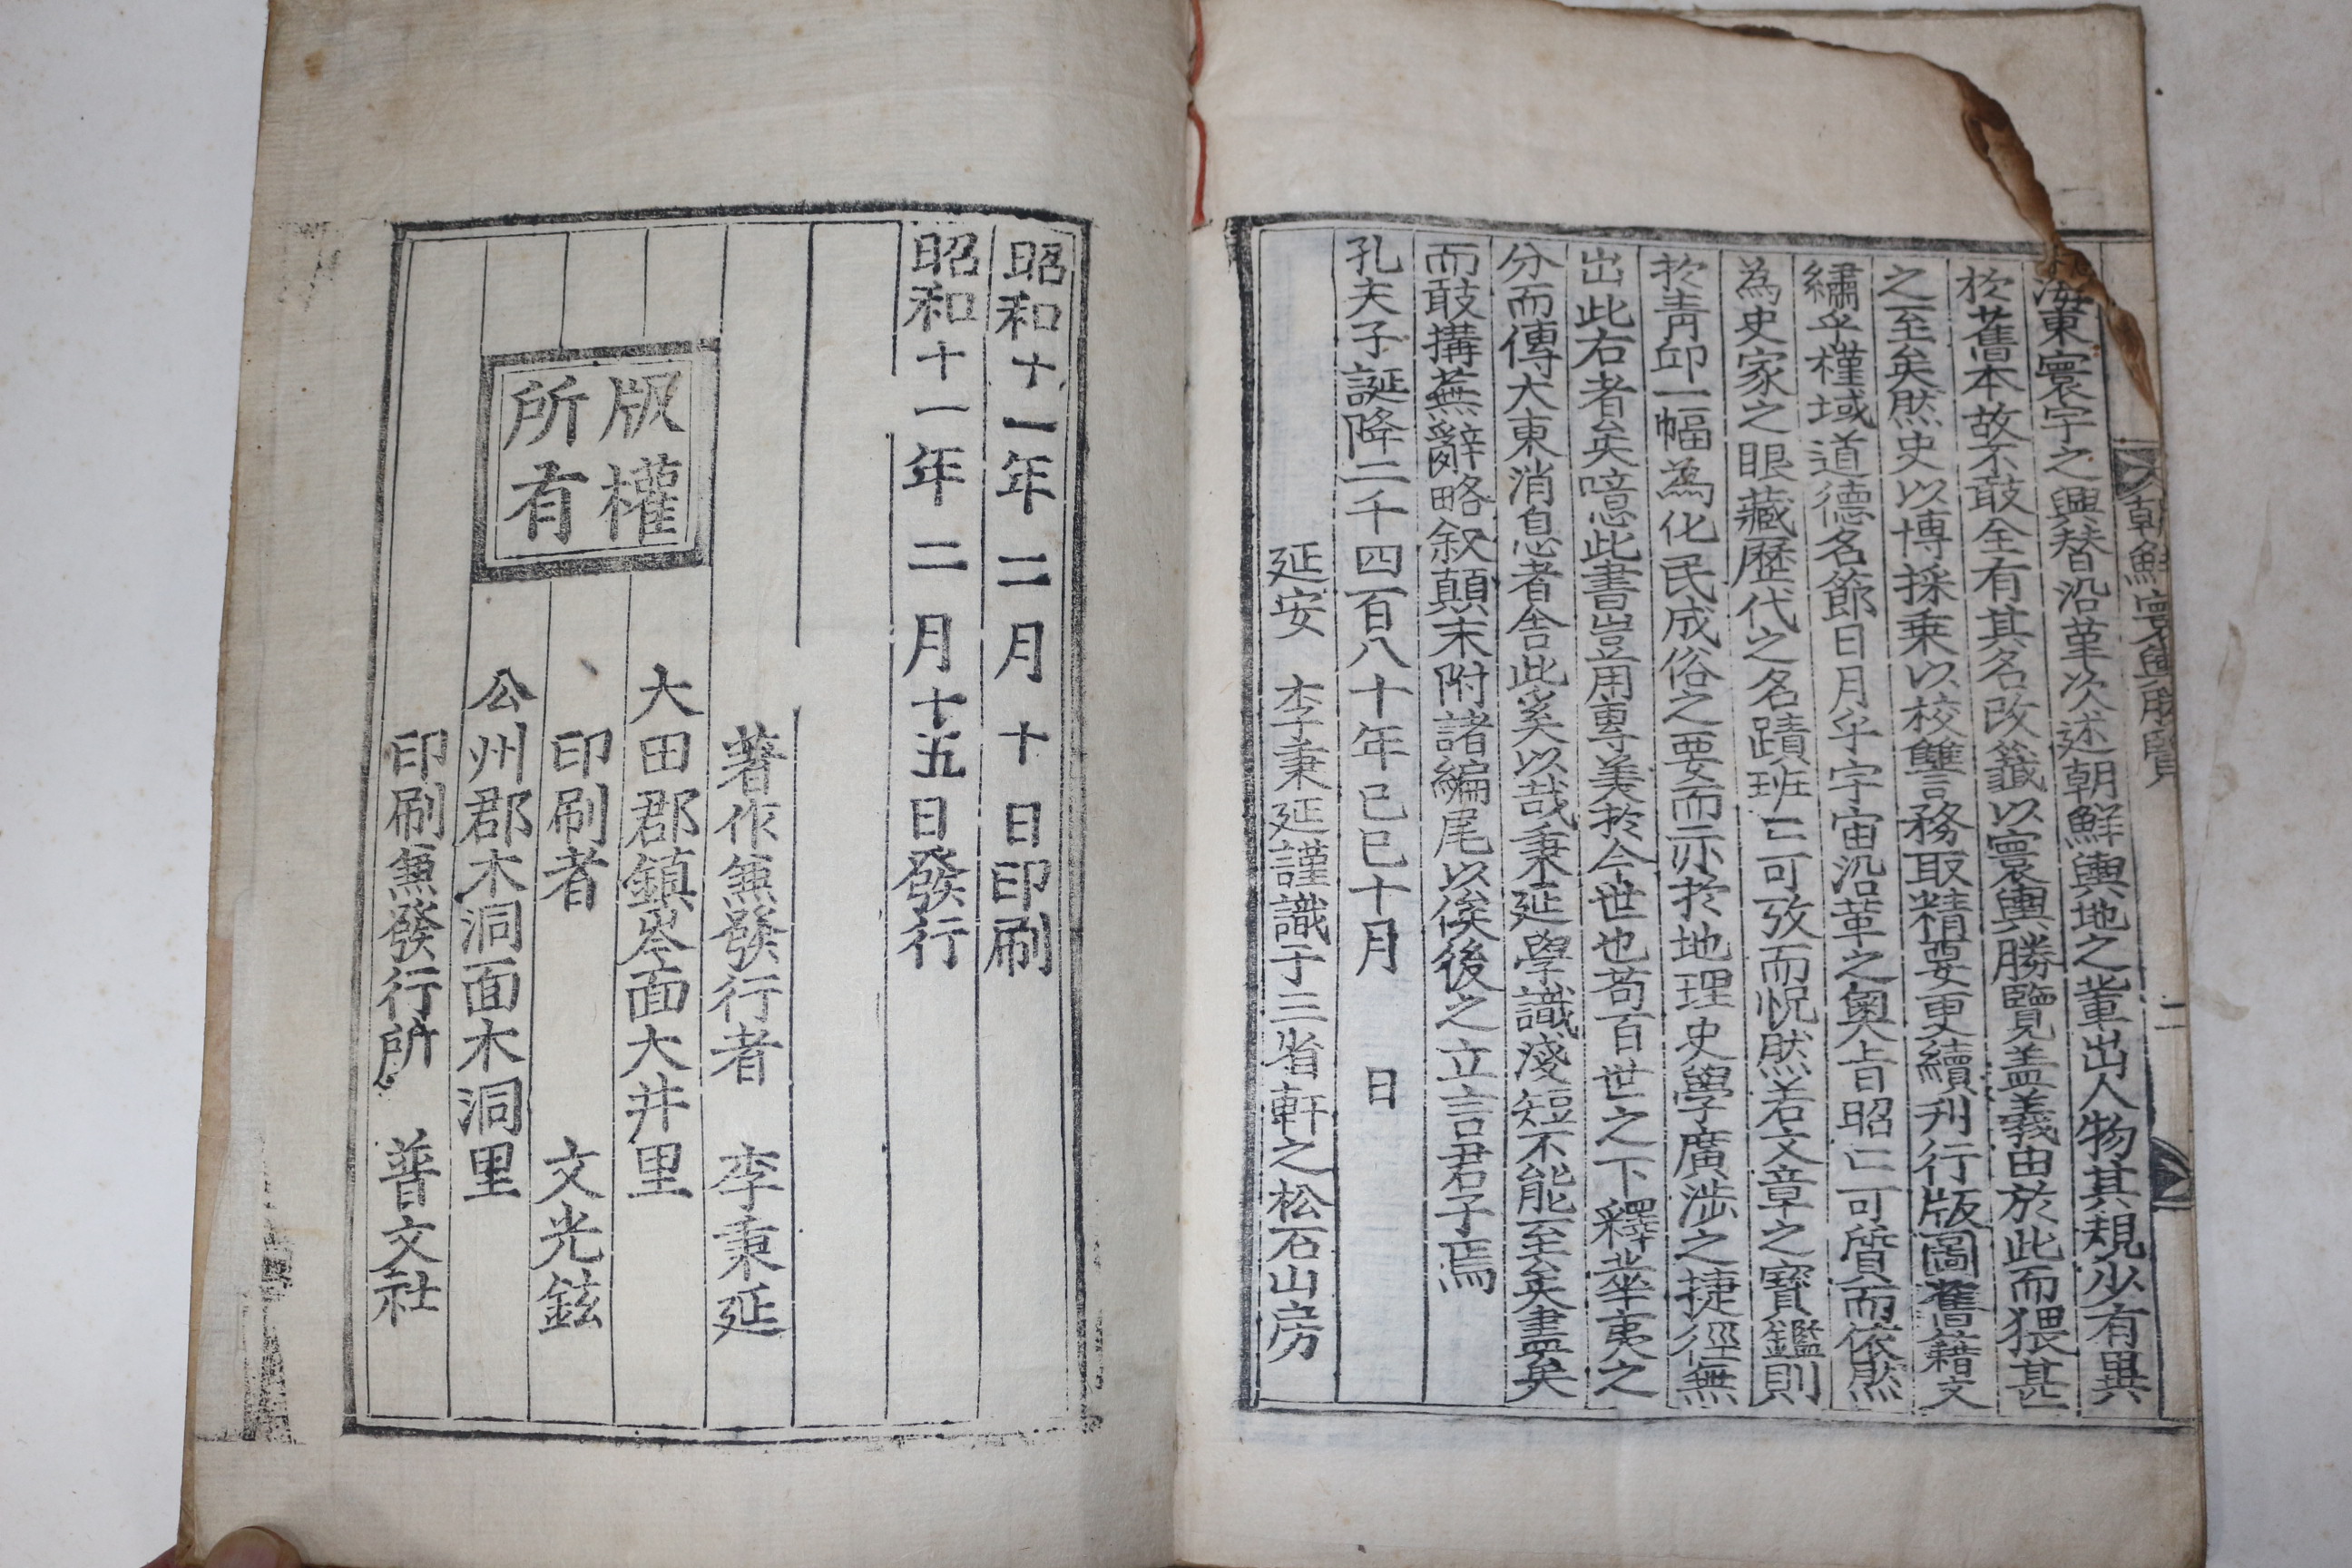 朝鮮寰輿勝覽
二
海東寰宇之興替沿革次述朝鮮輿地之軰出人物其規少有異
於舊本故不敢全有其名改籤以寰輿勝覽盖義由於此而猥甚
之至矣然史以博採乗以校讐務取精要更續刋行版圖舊籍文
繡乎槿域道德名節日月乎宇宙沿革之奧旨昭〻可質而依然
為史家之眼藏歷代之名蹟班〻可攷而怳然若文章之寶鑑則
於靑邱一幅為化民成俗之要而亦於地理史學廣涉之捷徑無
出此右者矣噫此書豈用專美於今世也苟百世之下釋華夷之
分而傳大東消息者舍此奚以哉秉延學識淺短不能至矣盡矣
而敢搆蕪辭略叙顛末附諸編尾以俟後之立言君子焉
孔夫子誕降二千四百八十年己巳十月 日
延安 李秉延謹識于三省軒之松石山房
昭和十一年二月十日印刷
昭和十一年二月十五日發行
著作兼發行者 李秉延
大田郡鎭岑面大井里
印刷者 文光鉉
公州郡木洞面木洞里
印刷兼發行所 普文社
版權
所有